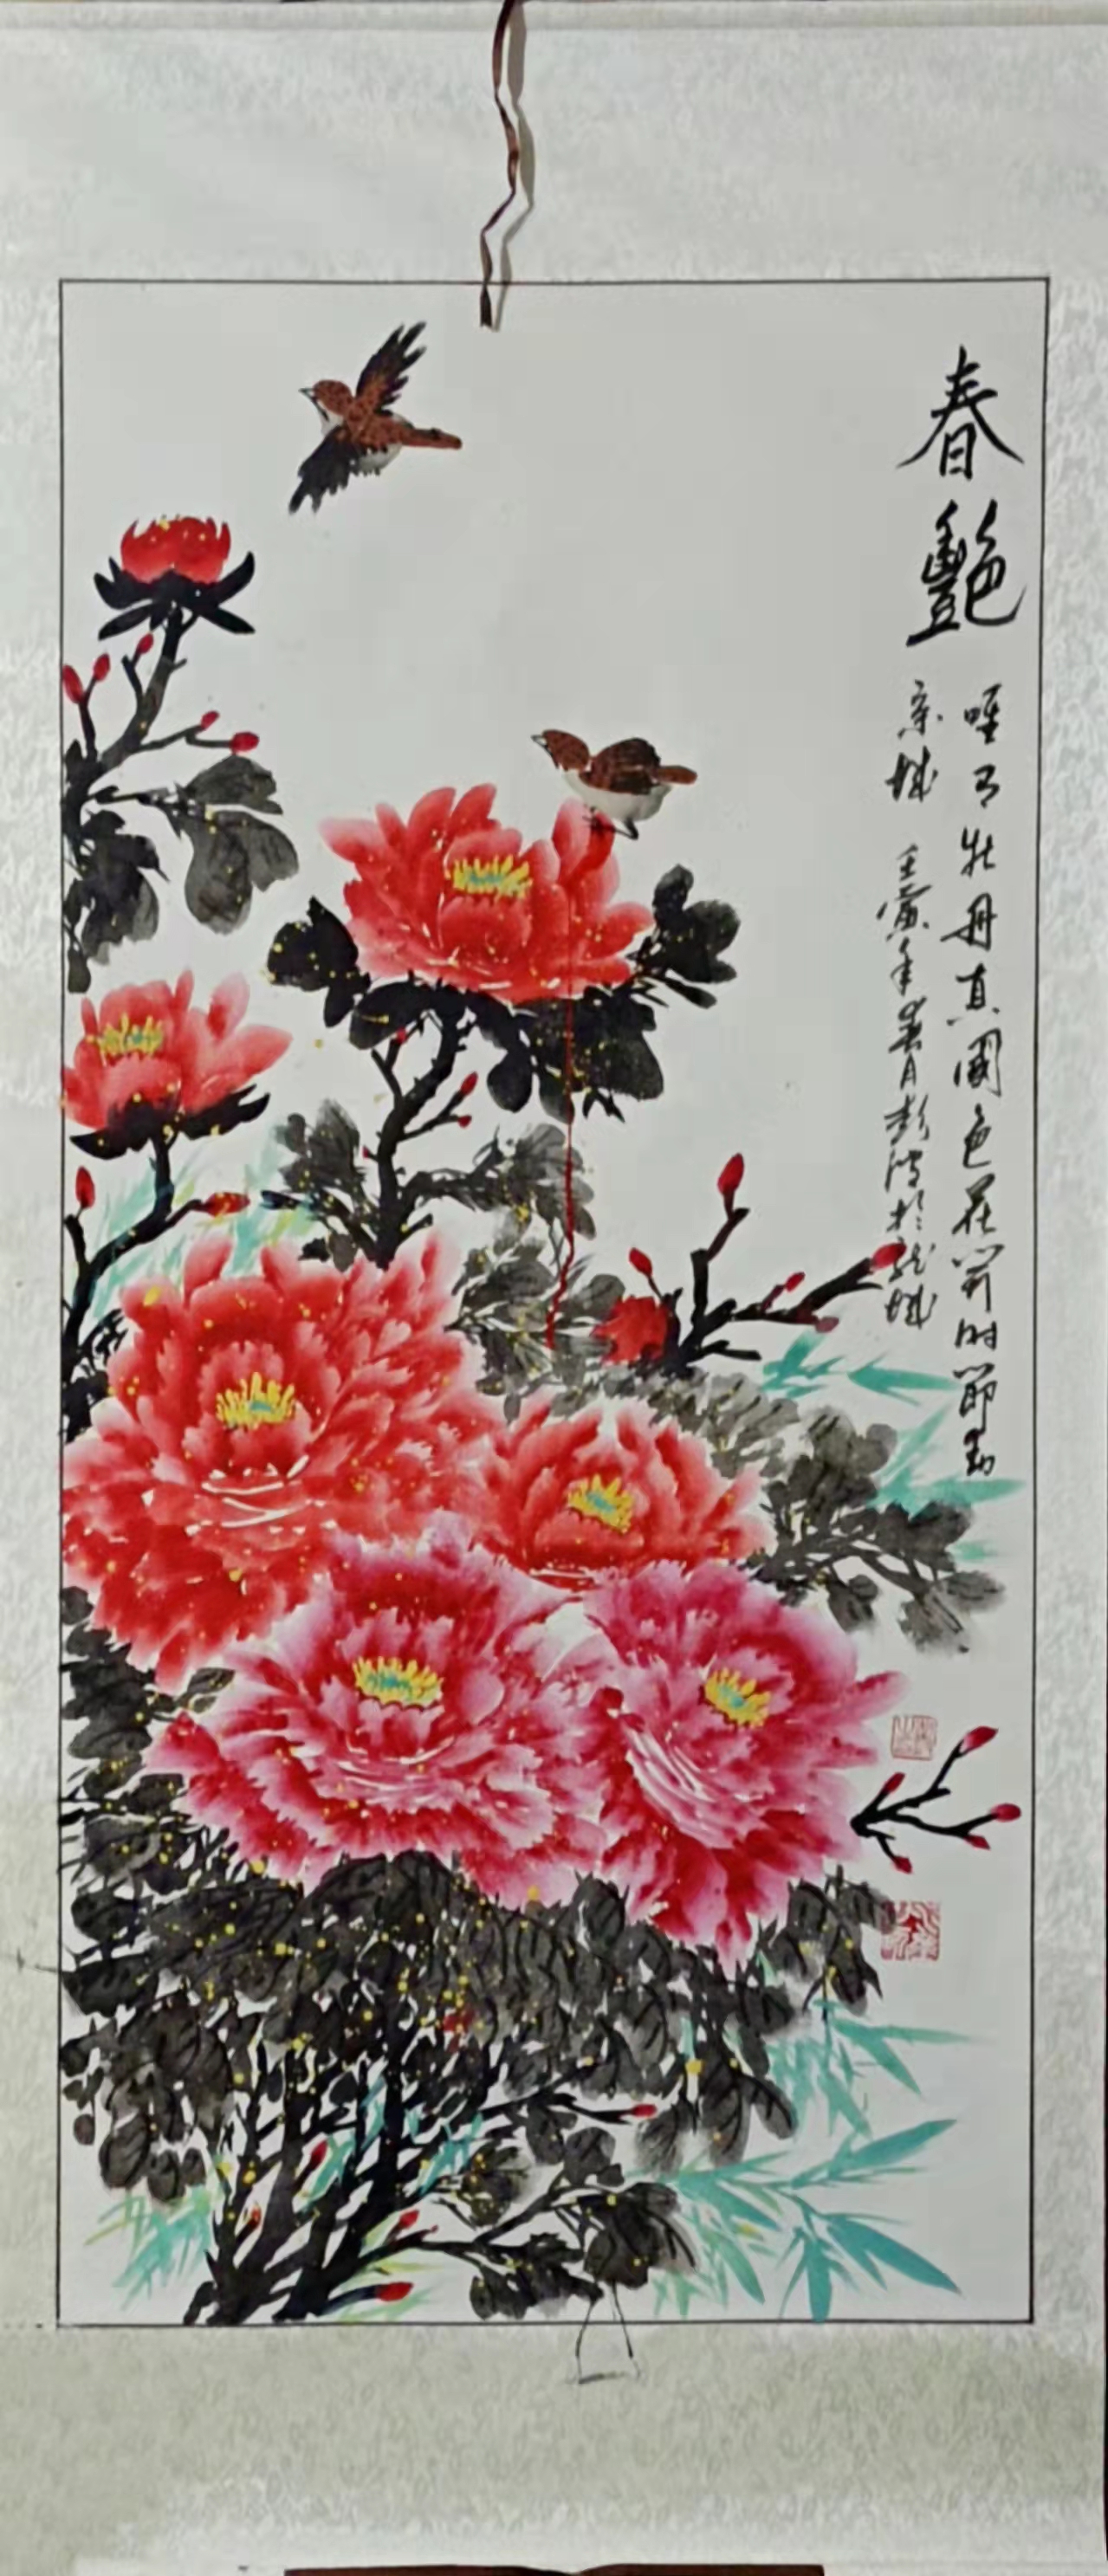 春艷
唯有牡丹真國色花開時節動
京城 壬寅年春月彭濤於龍城